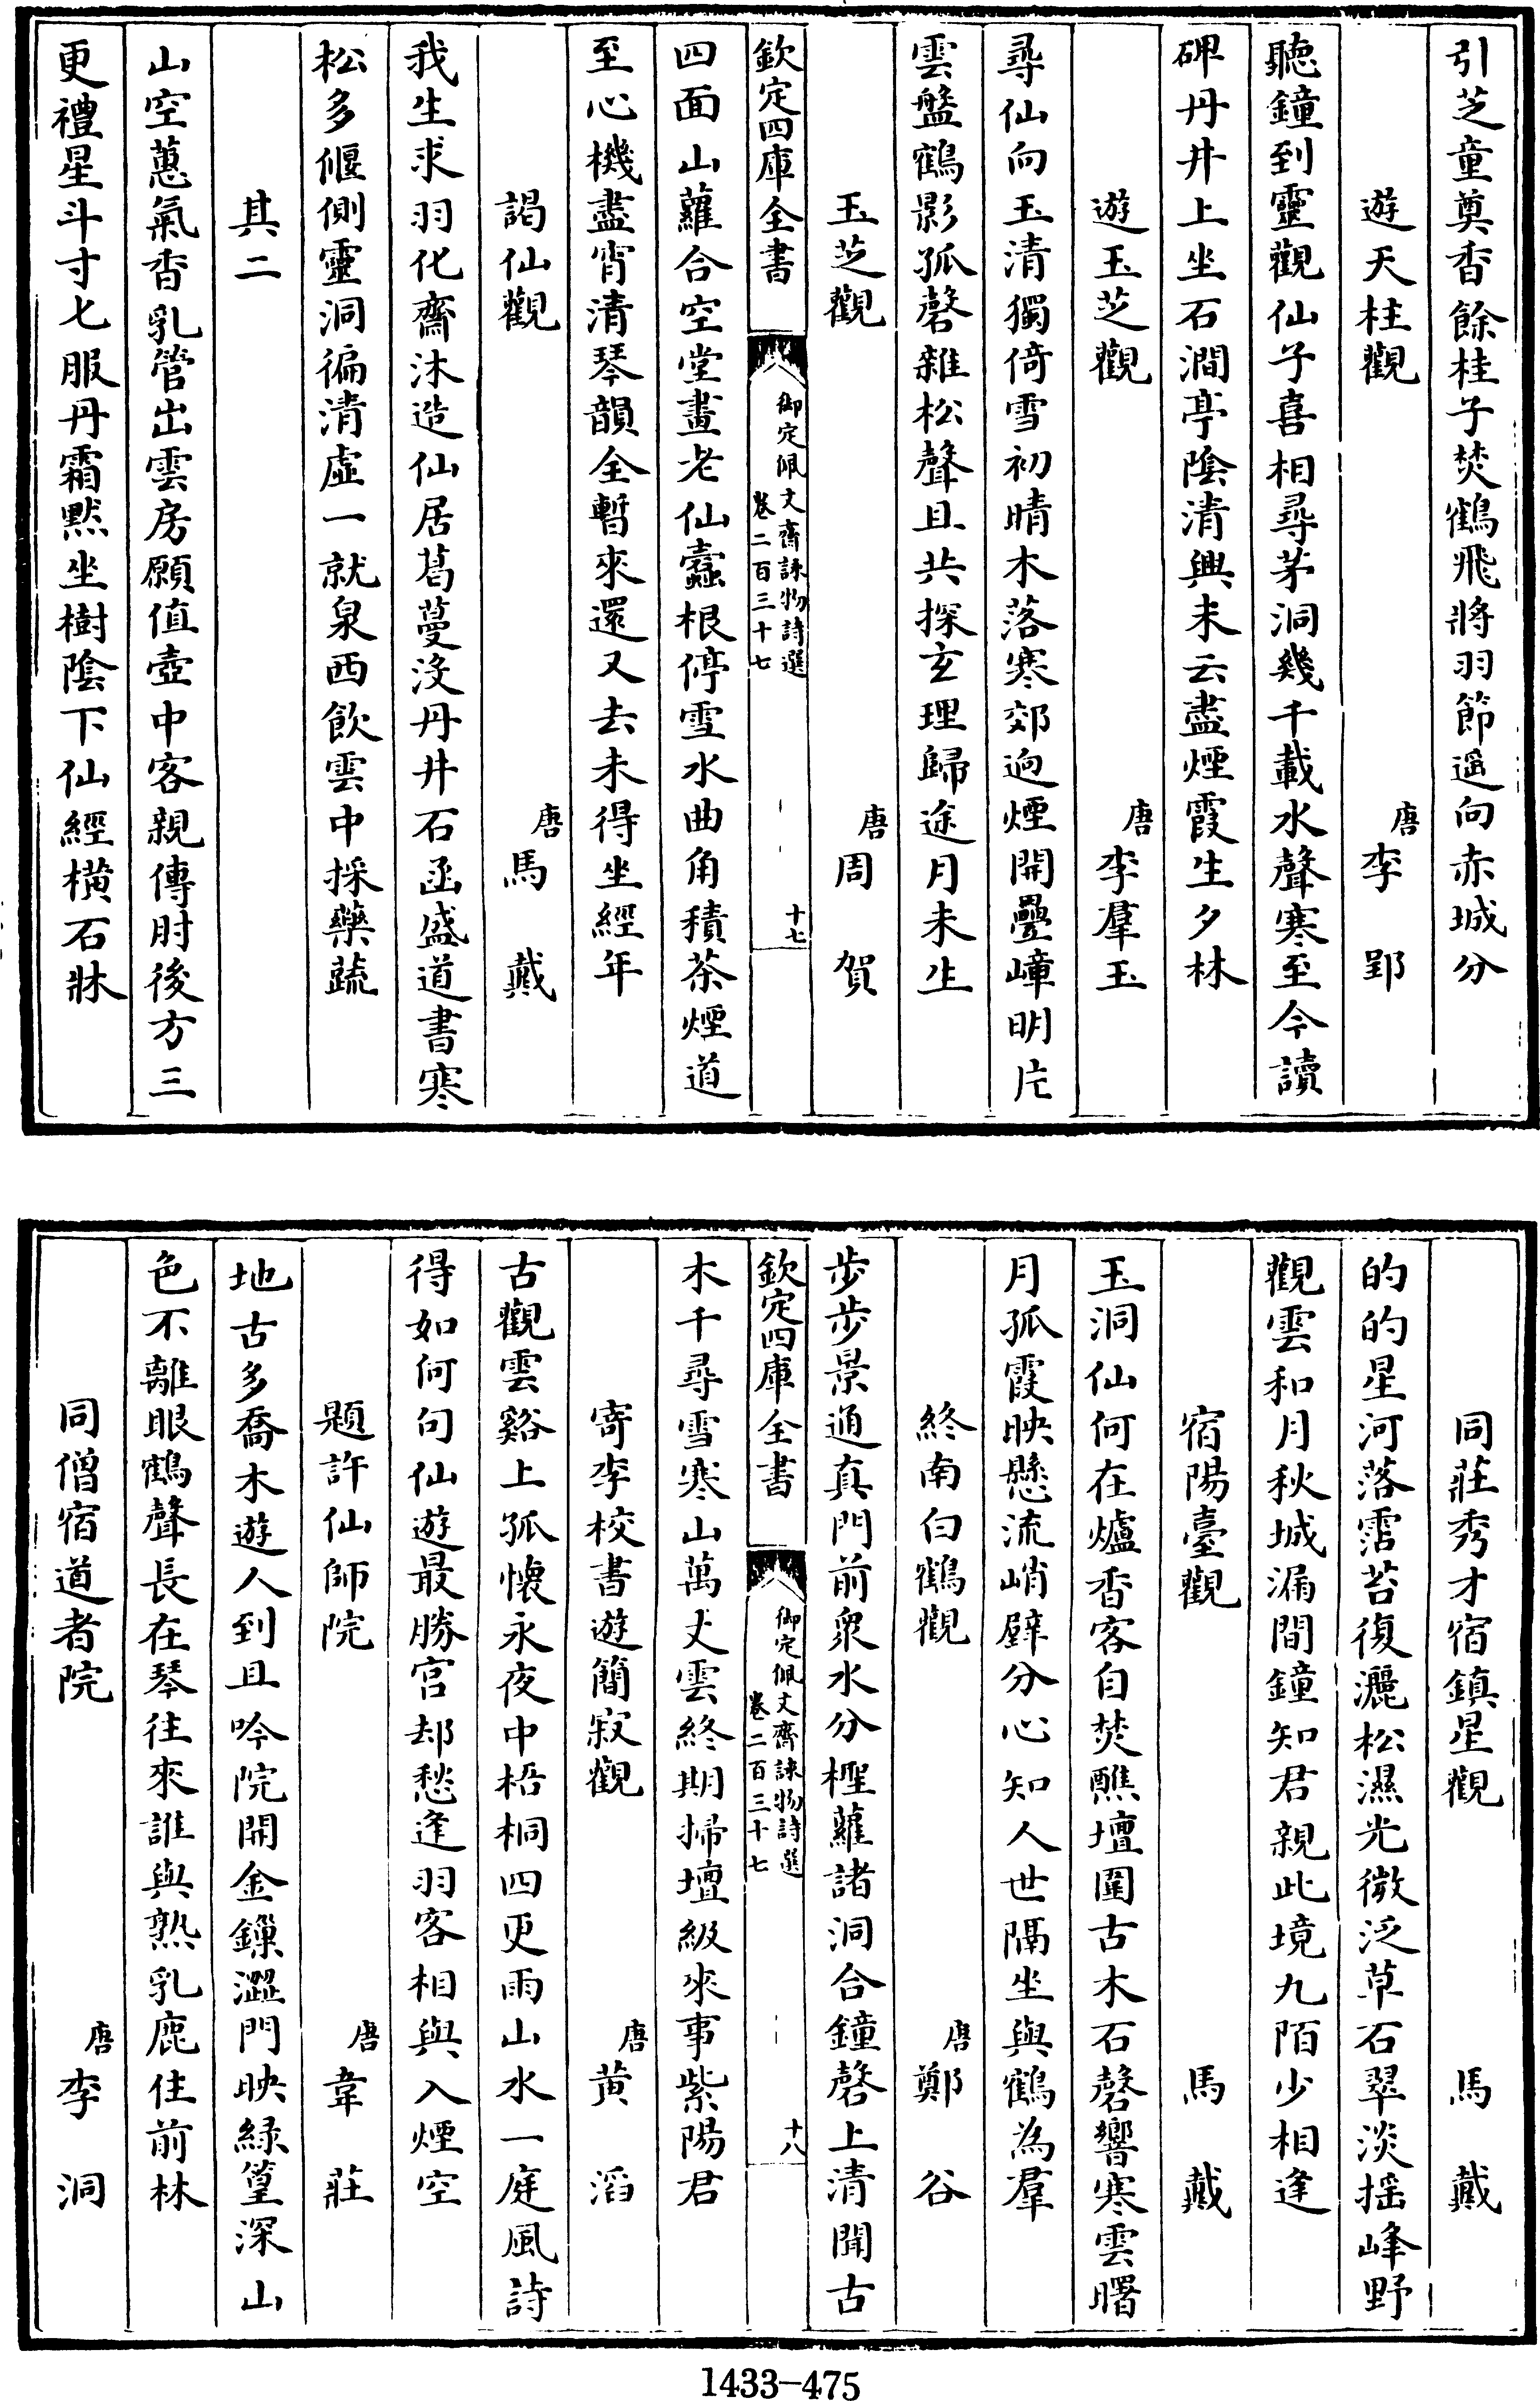 引芝童奠香餘桂子焚鶴飛將羽節遥向赤城分
遊天柱觀 唐李郢
聽鐘到靈觀仙子喜相尋茅洞幾千載水聲寒至今讀
碑丹井上坐石澗亭陰清興未云盡煙霞生夕林
遊玉芝觀 唐李羣玉
尋仙向玉清獨倚雪初晴木落寒郊迥煙開疊嶂明片
雲盤鶴影孤磬雜松聲且共探玄理歸途月未生
玉芝觀 唐周賀
欽定四庫全書 御定佩文齋詠物詩選 卷二百三十七 十七
四面山蘿合空堂畫老仙蠧根停雪水曲角積茶煙道
至心機盡宵清琴韻全暫來還又去未得坐經年
謁仙觀 唐馬戴
我生求羽化齋沐造仙居葛蔓没丹井石函盛道書寒
松多偃側靈洞徧清虛一就泉西飲雲中採藥蔬
其二
山空蕙氣香乳管出雲房願值壺中客親傳肘後方三
更禮星斗寸匕服丹霜黙坐樹陰下仙經横石牀
同莊秀才宿鎮星觀 馬戴
的的星河落霑苔復灑松濕光微泛草石翠淡摇峰野
觀雲和月秋城漏間鐘知君親此境九陌少相逢
宿陽臺觀 馬戴
玉洞仙何在爐香客自焚醮壇圍古木石磬響寒雲曙
月孤霞映懸流峭壁分心知人世隔坐與鶴為羣
終南白鶴觀 唐鄭谷
步步景通真門前衆水分檉蘿諸洞合鐘磬上清聞古
欽定四庫全書 御定佩文齋詠物詩選 卷二百三十七 十八
木千尋雪寒山萬丈雲終期掃壇級來事紫陽君
寄李校書遊簡寂觀 唐黄滔
古觀雲谿上孤懷永夜中梧桐四更雨山水一庭風詩
得如何句仙遊最勝宮却愁逢羽客相與入煙空
題許仙師院 唐韋莊
地古多喬木遊人到且吟院開金鏁澀門映緑篁深山
色不離眼鶴聲長在琴往來誰與熟乳鹿住前林
同僧宿道者院 唐李洞
1433-475